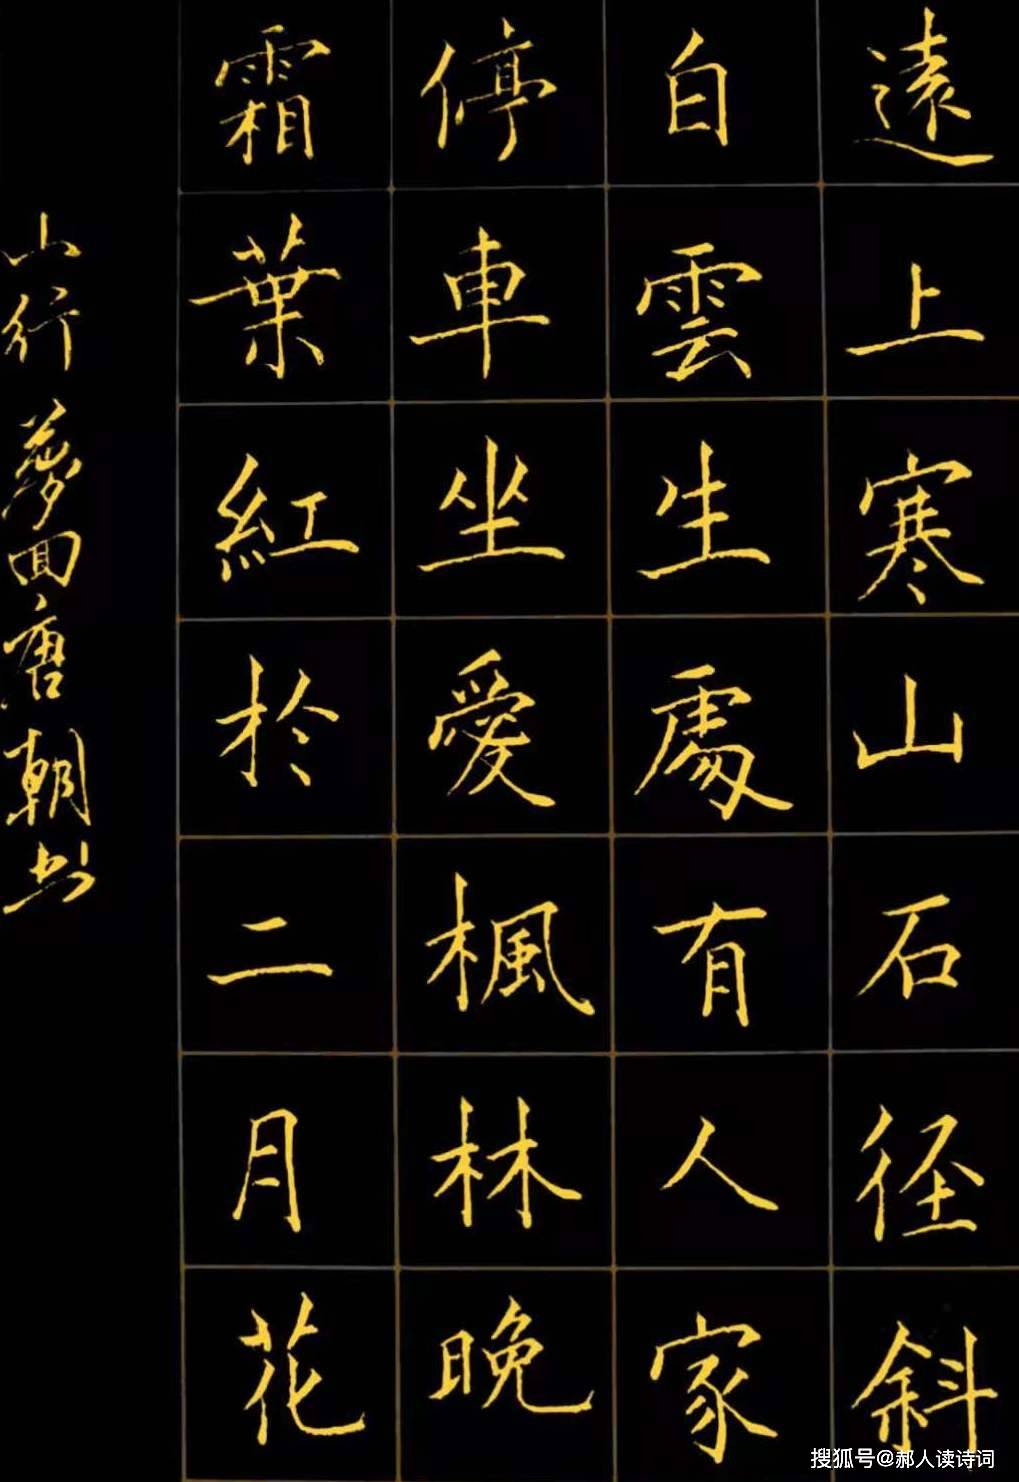 遠上寒山石径斜
白雲生處有人家
停車坐愛楓林晚
霜葉紅於二月花
山行 夢回唐朝书
搜狐号@郝人读诗词